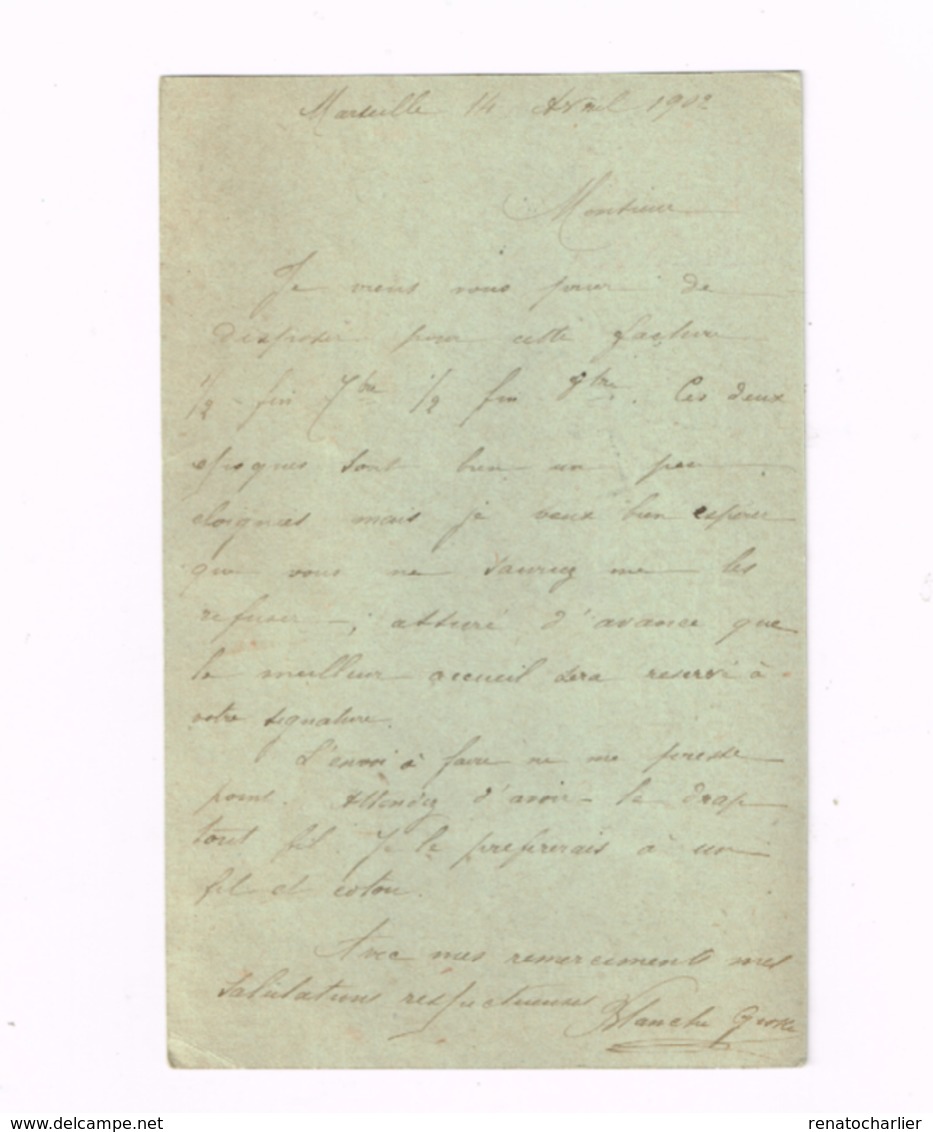 Marseille 14 Avril 1902
Monsieur
Je viens vous prier de
disposer pour cette facture
1/2 fin 7bre 1/2 fin 9bre. Ces deux
époques sont bien un peu
éloignées mais je veux bien espérer
que vous ne sauriez me les
refuser -, assuré d'avance que
le meilleur accueil sera reservé à
votre signature.
L'envoi à faire ne me presse
point. Attendez d'avoir le drap
tout fil. Je le prefererais à un
fil et coton.
Avec mes remerciements mes
salutations respectueuses Blanche
delcampe.net
renatocharlier